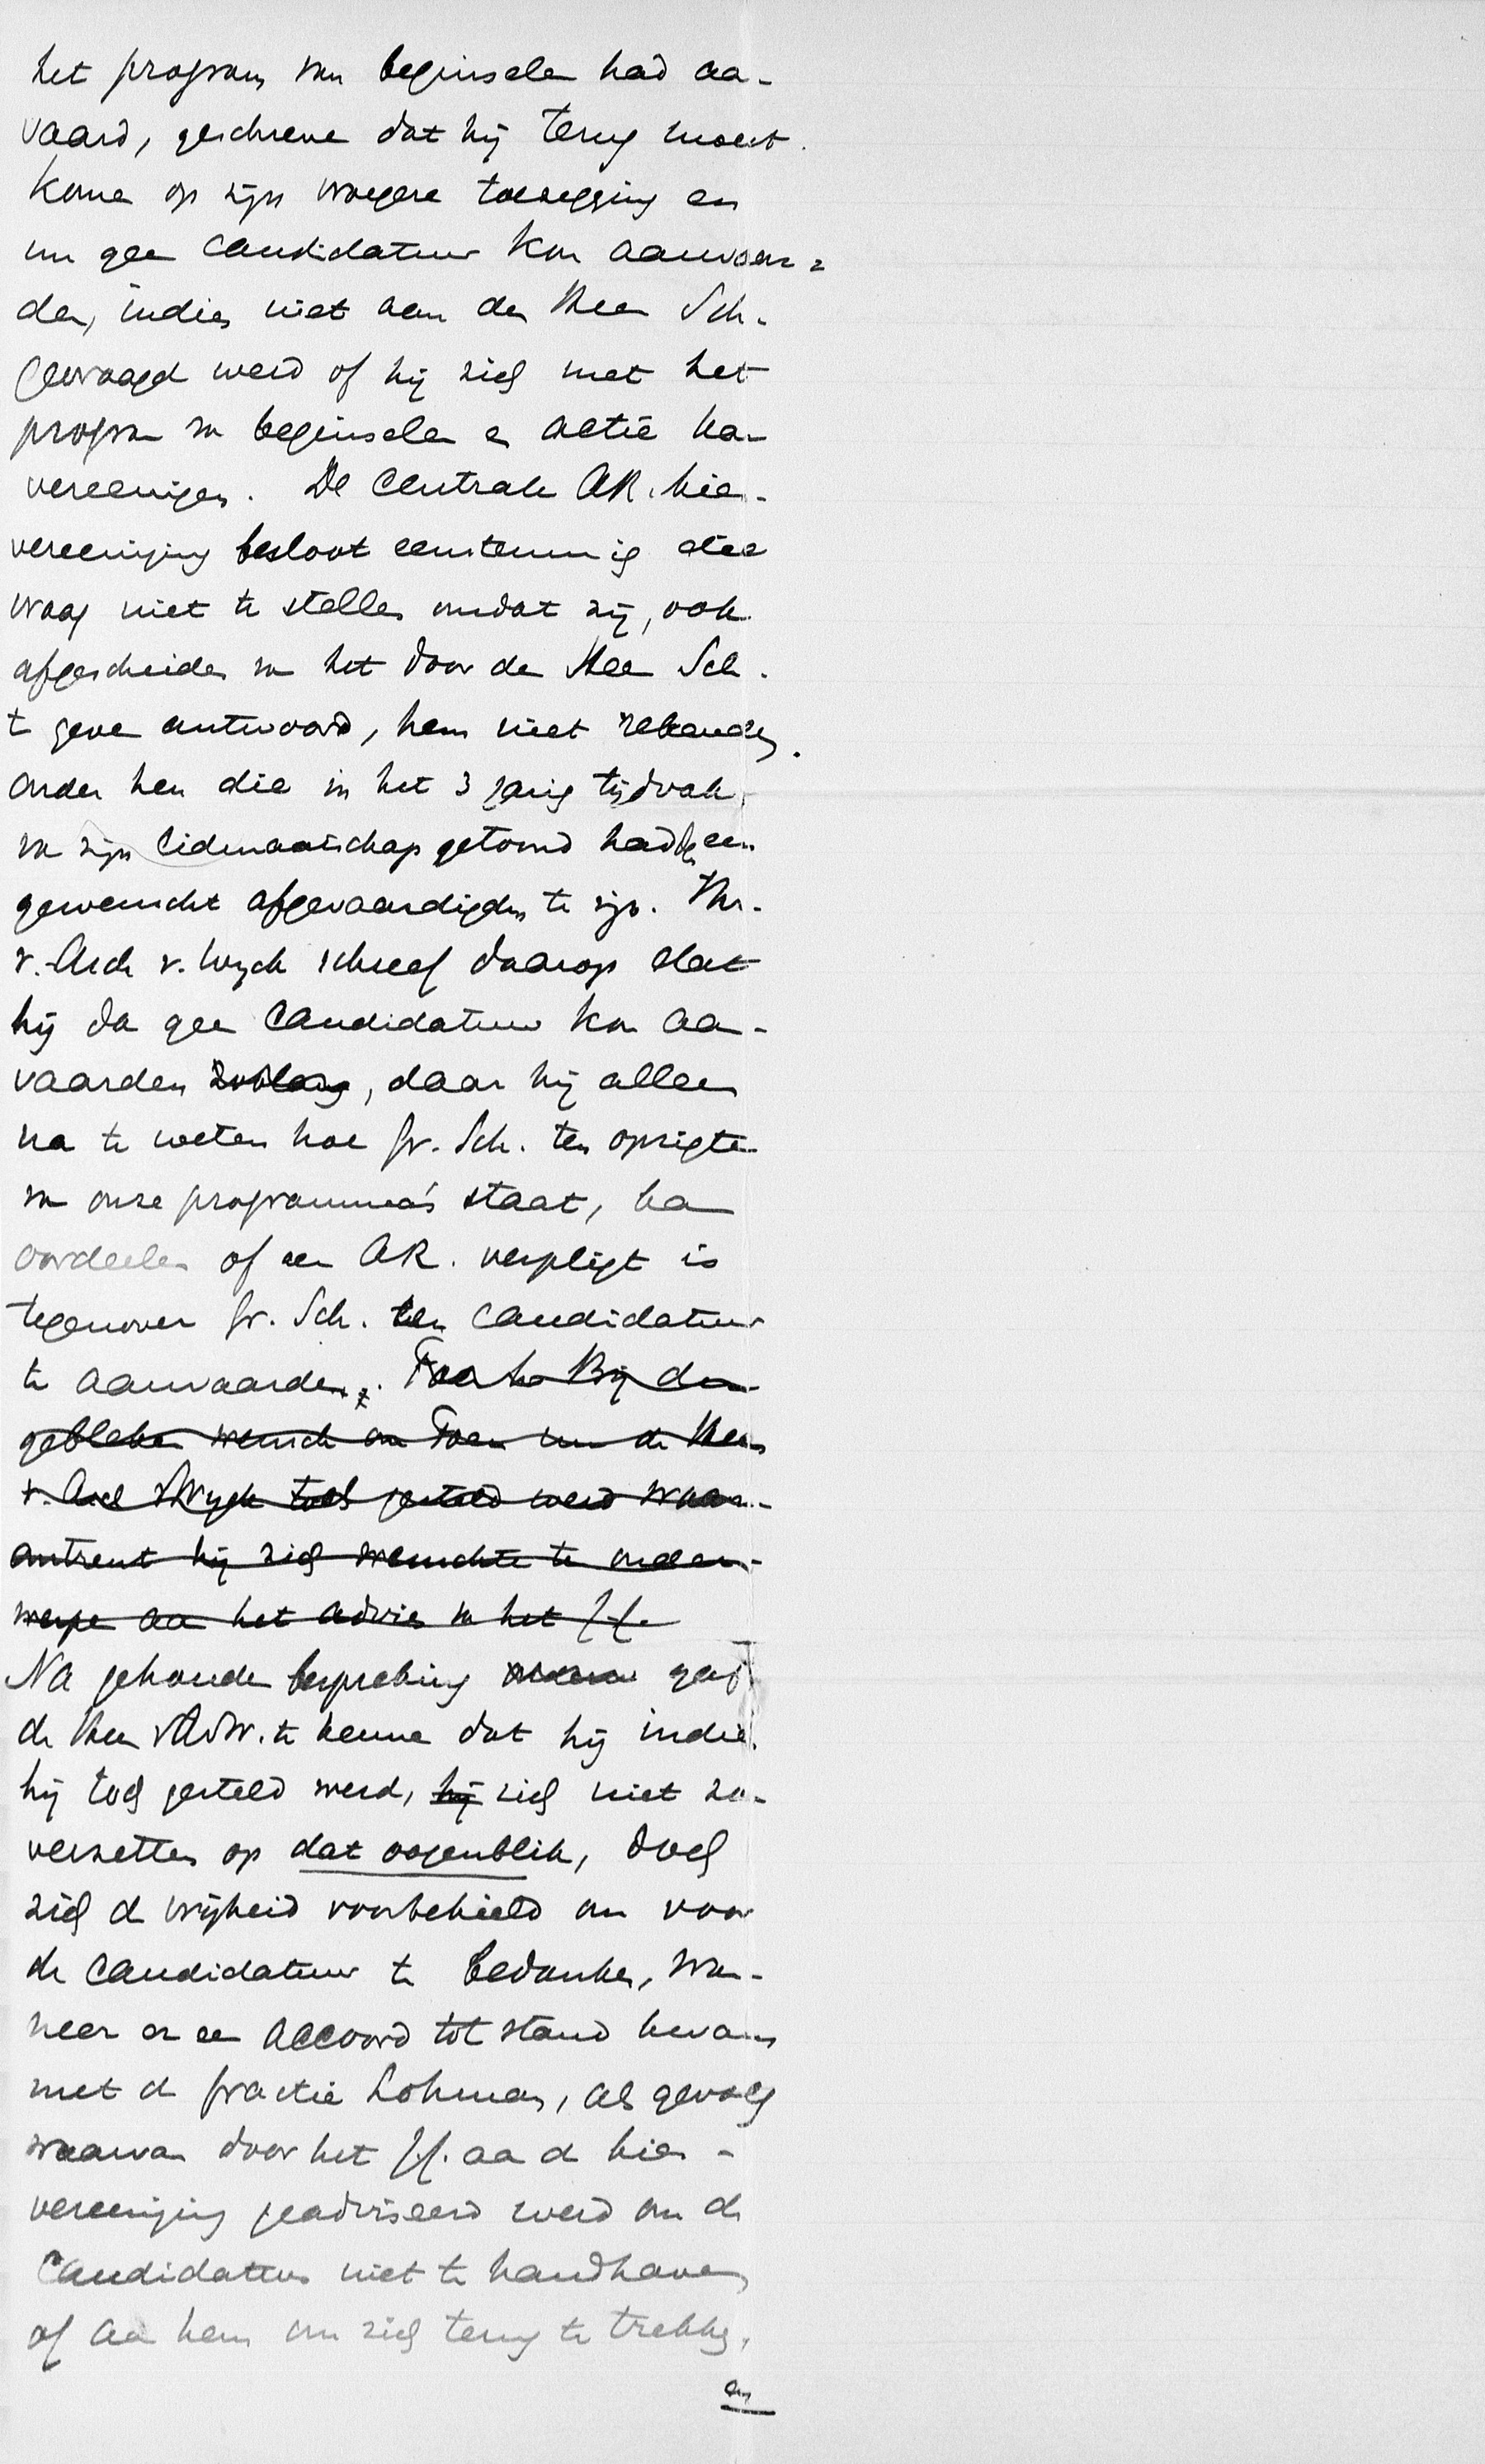 het program van beginselen had aan-
vaard, geschreven dat hij terug moest
komen op zijn vroegere toezegging en
nu geen candidatuur kon aanvaar-
den, indien niet aan den Heer Sch.
gevraagd werd of hij zich met het
program van beginselen en actie kan
vereenigen. De Centrale AR. kies-
vereeniging besloot eenstemmig die
vraag niet te stellen omdat zij, ook
afgescheiden van het door den Heer Sch.
te geven antwoord, hem niet rekenden
onder hen die in het 3 jarig tijdvak
van zijn lidmaatschap getoond hadden een
gewenscht afgevaardigden te zijn. Mr.
v. Asch v. Wyck schreef daarop dat
hij dan geen candidatuur kon aan-
vaarden, daar hij alleen
na te weten hoe Jr. Sch. ten opzigte
van onze programma's staat, kan
oordeelen of een AR. verpligt is
tegenover Jr. Sch. een candidatuur
te aanvaarden. Bij den
gebleken wensch om Toen nu de Heer
v. Asch v Wyck toch gesteld werd waar-
omtrent hij zich wenschte te onder-
werpen aan het advies van het C.C.
Na gehouden bespreking gaf
de Heer vAvW. te kennen dat hij indien
hij toch gesteld werd, hij zich niet zou
verzetten op dat oogenblik, doch
zich de vrijheid voorbehield om voor
de candidatuur te bedanken, wan-
neer er een accoord tot stand kwam
met de fractie Lohman, als gevolg
waarvan door het C.C. aan de kies-
vereeniging geadviseerd werd om de
Candidatuur niet te handhaven
of aan hem om zich terug te trekken,
en